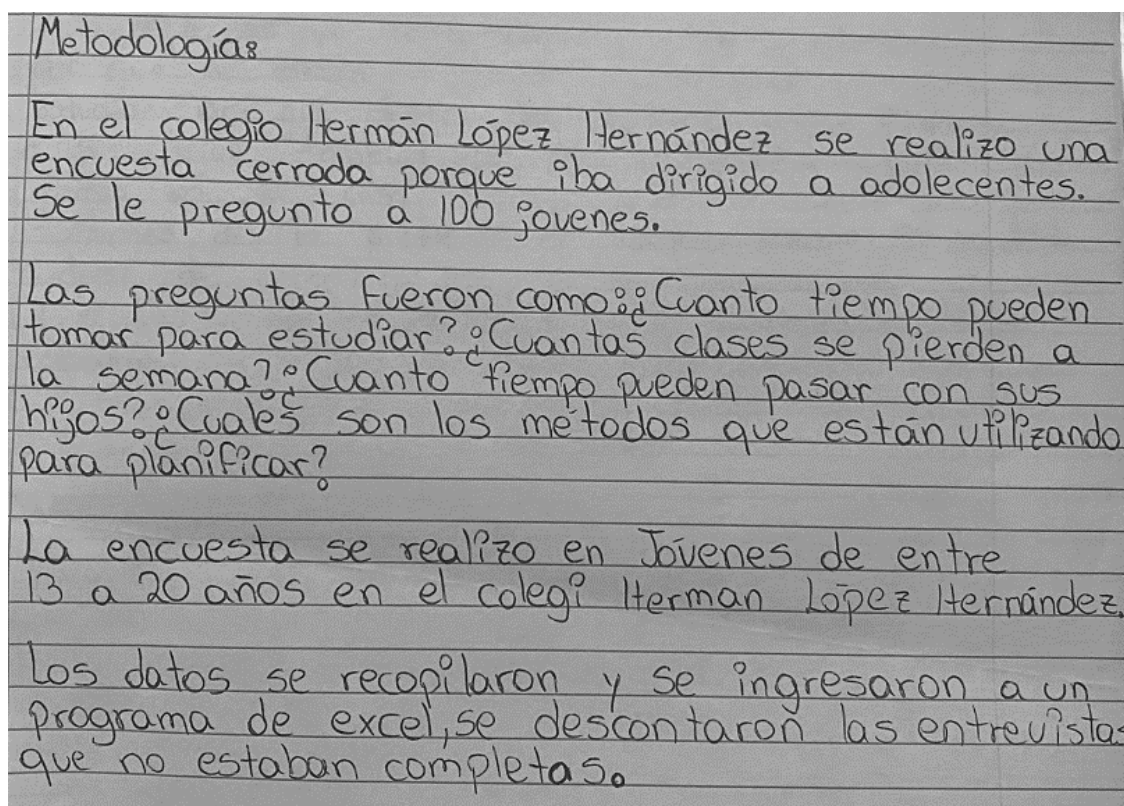 Metodología:
En el colegio Hermán López Hernández se realizo una
encuesta cerrada porque iba dirigido a adolecentes.
Se le pregunto a 100 jovenes.
Las preguntas fueron como: ¿Cuanto tiempo pueden
tomar para estudiar? ¿Cuantas clases se pierden a
la semana? ¿Cuanto tiempo pueden pasar con sus
hijos? ¿Cuales son los métodos que están utilizando
para planificar?
La encuesta se realizo en Jóvenes de entre
13 a 20 años en el colegi Herman López Hernández.
Los datos se recopilaron y se ingresaron a un
programa de excel, se descontaron las entrevistas
que no estaban completas.